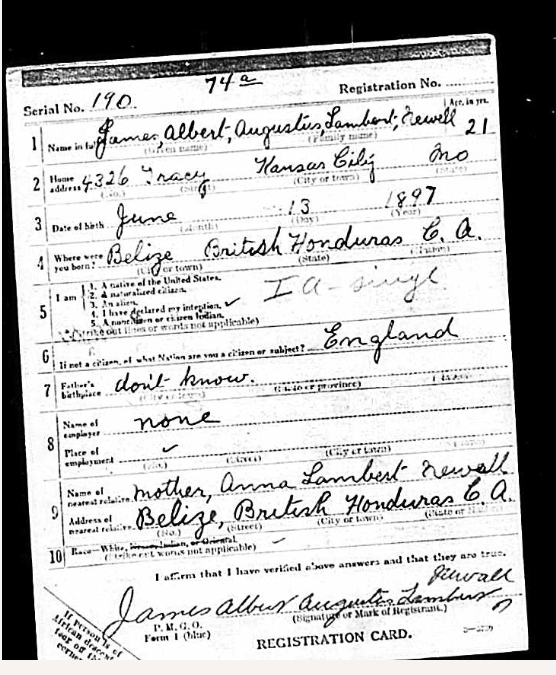 74a
Serial No. 190. Registration No.
Age, in yrs.
1 Name in full James, Albert, Augustus, Lambert, Newell 21
(Given name) (Family name)
2 Home address 4326 Tracy Kansas City Mo
(No.) (Street) (City or town) (State)
3 Date of birth June 13 1897
(Month) (Day) (Year)
4 Where were you born? Belize British Honduras C. A.
(City or town) (State) (Nation)
5 I am
1. A native of the United States.
2. A naturalized citizen.
3. An alien.
4. I have declared my intention. ✓
5. A noncitizen or citizen Indian.
(Strike out lines or words not applicable)
I A - single
6 If not a citizen, of what Nation are you a citizen or subject? England
7 Father's birthplace don't know.
(City or town) (State or province) (Nation)
8 Name of employer none
Place of employment ✓
(No.) (Street) (City or town) (State)
9 Name of nearest relative mother, Anna Lambert Newell
Address of nearest relative Belize, British Honduras C. A.
(No.) (Street) (City or town)
10 Race—White, Negro, Indian, or Oriental.
(Strike out words not applicable)
I affirm that I have verified above answers and that they are true.
James Albert Augustus Lambert Newall
(Signature or Mark of Registrant.)
P. M. G. O.
Form 1 (blue)
REGISTRATION CARD.
If person is of
African descent
tear off this
corner